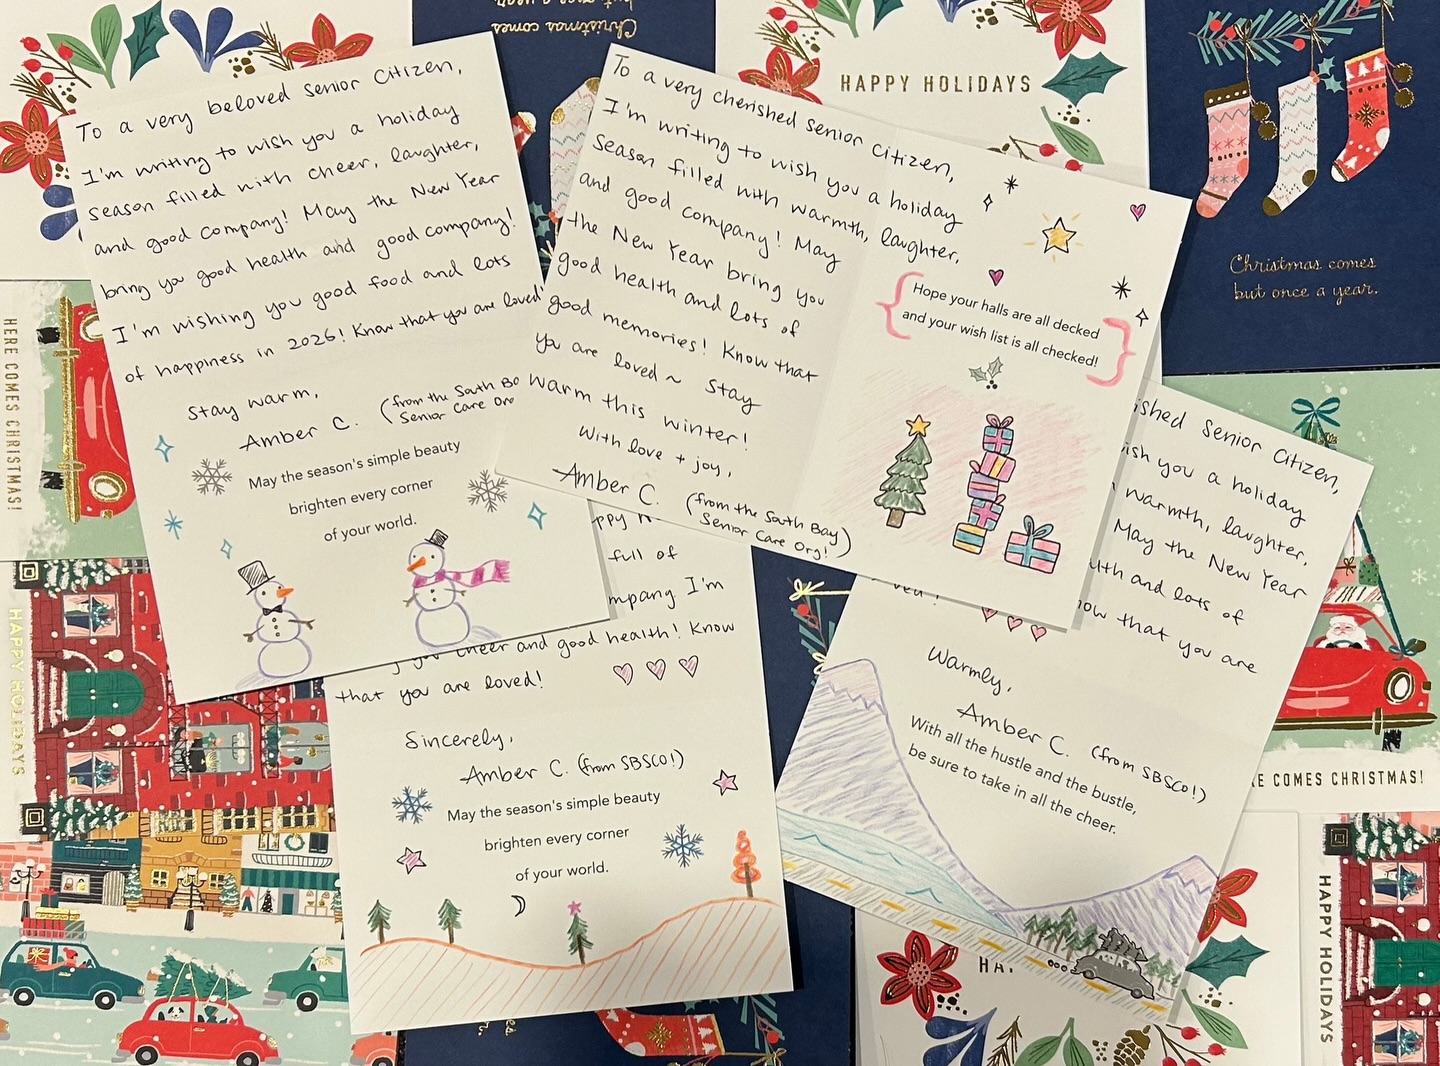 To a very beloved Senior Citizen,
I'm writing to wish you a holiday
season filled with cheer, laughter,
and good company! May the New Year
bring you good health and good company!
I'm wishing you good food and lots
of happiness in 2026! Know that you are loved!
Stay warm,
Amber C. (from the South
Senior Care
May the season's simple beauty
brighten every corner
of your world.
To a very cherished Senior Citizen,
I'm writing to wish you a holiday
season filled with warmth, laughter,
and good company! May
the New Year bring you
good health and lots of
good memories! Know that
you are loved ~ Stay
warm this winter!
With love + joy,
Amber C. (from the South Bay
Senior Care Org!)
Hope your halls are all decked
and your wish list is all checked!
full of
I'm
cheer and good health! Know
that you are loved!
Sincerely,
Amber C. (from SBSCO!)
May the season's simple beauty
brighten every corner
of your world.
Senior Citizen,
you a holiday
warmth, laughter,
May the New Year
and lots of
that you are
Warmly,
Amber C. (from SBSCO!)
With all the hustle and the bustle,
be sure to take in all the cheer.
Christmas comes
but once a year.
HAPPY HOLIDAYS
Christmas comes
but once a year.
HERE COMES CHRISTMAS!
HAPPY HOLIDAYS
COMES CHRISTMAS!
HAPPY HOLIDAYS